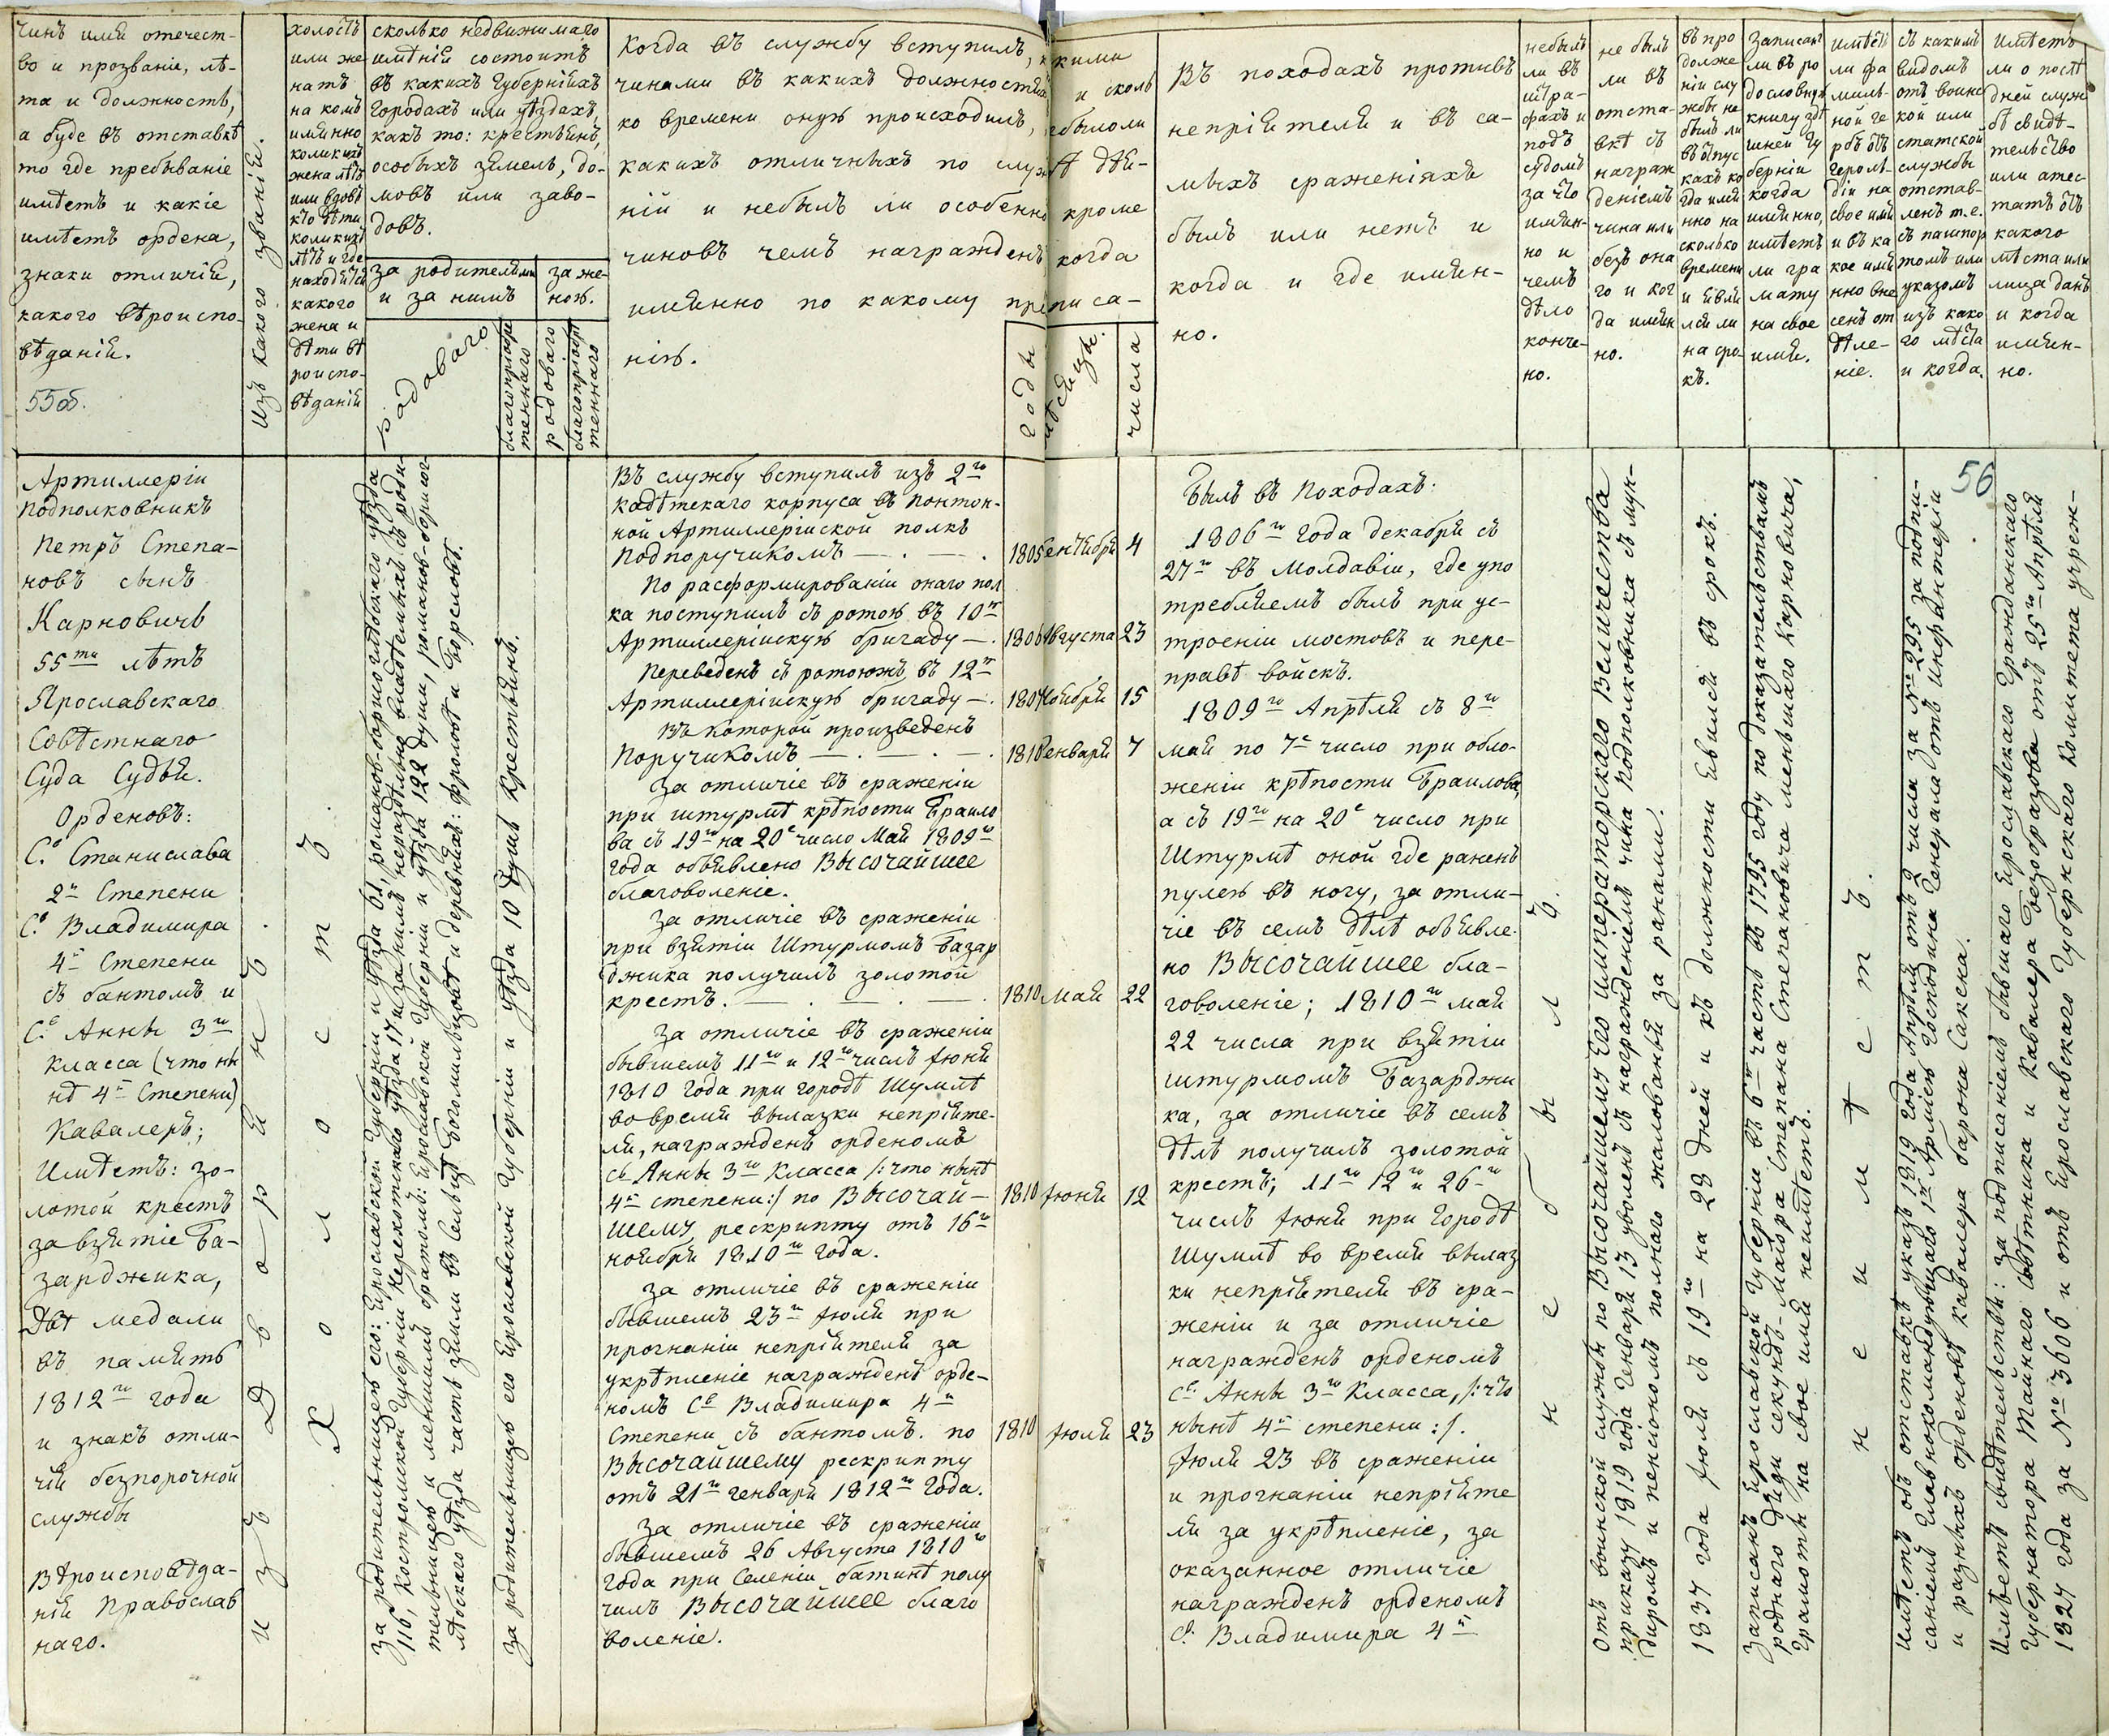 чинъ имя отечест-
во и прозваніе, лѣ-
та и должность,
а буде въ отставкѣ
то где пребываніе
имѣетъ и какіе
имѣетъ ордена,
знаки отличія,
какого вѣроиспо-
вѣданія.
55об.
Изъ какого званія.
холостъ
или же
натъ
на комъ
имянно
коликихъ
жена лѣтъ
или вдовъ
кто дѣти
коликихъ
лѣтъ и где
находятся
какого
жена и
дѣти вѣ
роиспо-
вѣданія
сколько недвижимаго
имѣнія состоитъ
въ какихъ Губерніяхъ
городахъ или уѣздахъ,
какъ то: крестьянъ,
особыхъ земель, до-
мовъ или заво-
довъ.
за родителями
и за нимъ
за же-
ною.
родоваго
благопріобре
теннаго
родоваго
благопріобре
теннаго
Когда въ службу вступилъ, какими
чинами въ какихъ должностяхъ и сколь
ко времени онуя происходилъ, небыло ли
какихъ отличныхъ по службѣ дѣя-
ній и небылъ ли особенно кроме
чиновъ чемъ награжденъ когда
имянно по какому пре писа-
нію.
годы
мѣсяцы.
числа
Въ походахъ противъ
непріятеля и въ са-
мыхъ сраженіяхъ
былъ или нетъ и
когда и где имян-
но.
небылъ
ли въ
штра-
фахъ и
подъ
судомъ
за что
имян-
но и
чемъ
дѣло
конче-
но.
не былъ
ли въ
отста-
вкѣ съ
награж
деніемъ
чина или
безъ она
го и ког
да имян
но.
въ про
долже
ніи слу
жбы не
былъ ли
въ отпус
кахъ ко
гда имя
нно на
сколько
времени
и явил
ся ли
на сро-
къ.
записанъ
ли въ ро
дословную
книгу здѣ
шней Гу
берніи
когда
имянно,
имѣетъ
ли гра
мату
на свое
имя.
имѣетъ
ли фа
миль-
ной ге
рбъ отъ
герольдіи на
свое имя
и въ ка
кое имя
нно вне
сенъ от
дѣле-
ніе.
съ какимъ
видомъ
отъ воинс
кой или
статской
службы
отстав-
ленъ т.е.
съ пашпор
томъ или
указомъ
изъ како
го мѣста
и когда.
имѣетъ
ли о послѣ
дней служ
бѣ свидѣ-
тельство
или атес-
татъ отъ
какого
мѣста или
лица данъ
и когда
имян-
но.
56
Артиллеріи
Подполковникъ
Петръ Степа-
новъ сынъ
Карновичь
55ти лѣтъ
Ярославскаго
Совѣстнаго
Суда Судья.
Орденовъ:
Св. Станислава
2й Степени
Св. Владимира
4й Степени
съ бантомъ и
Св. Анны 3го
класса (что ны
нѣ 4й Степени)
Кавалеръ;
Имѣетъ: зо-
лотой крестъ
за взятіе Ба-
зарджика,
Двѣ медали
въ память
1812го года
и знакъ отли-
чія безпорочной
службы
Вѣроисповѣда-
нія Православ
наго.
изъ Дворянъ.
Холостъ.
За родительницею его: Ярославской Губерніи и уѣзда 61, романов-борисоглѣбскаго уѣзда
116, Костромской Губерніи Нерехотскаго уѣзда 17 и за нимъ нераздѣльно владѣемыхъ съ роди-
тельницею и меньшимъ братомъ: Ярославской Губерніи и уѣзда 122 души, романов-борисог-
лѣбскаго уѣзда часть земли въ Сельцѣ Богомиловѣ и деревняхъ: фролове и Борсловѣ.
За родительницею его Ярославской Губерніи и уѣзда 10 душъ крестьянъ.
Въ службу вступилъ изъ 2го
кадѣтскаго корпуса въ понтон-
ной Артиллерійской полкъ
Подпоручикомъ 1805 Сентября 4
По расформированіи онаго пол
ка поступилъ съ ротою въ 10ю
Артиллерійскую бригаду 1806 Августа 23
Переведенъ съ ротоюжъ въ 12ю
Артиллерійскую бригаду 1807 Ноября 15
Въ которой произведенъ
Поручикомъ 1810 Генваря 7
За отличіе въ сраженіи
при штурмѣ крѣпости Браило
ва съ 19го на 20е число Мая 1809го
года объявлено Высочайшее
благоволеніе.
За отличіе въ сраженіи
при взятіи Штурмомъ Базар
джика получилъ золотой
крестъ. 1810 Мая 22
За отличіе въ сраженіи
бывшемъ 11го и 12го числъ Іюня
1810 года при городѣ Шумлѣ
во время вылазки непріяте-
ля, награжденъ орденомъ
Св Анны 3го Класса /:что нынѣ
4й степени:/ по Высочай- 1810 Іюня 12
шему рескрипту отъ 16го
ноября 1810го года.
За отличіе въ сраженіи
бывшемъ 23го Іюля при
прогнаніи непріятеля за
укрѣпленіе награжденъ орде-
номъ Св Владимира 4й
Степени съ бантомъ. по 1810 Іюля 23
Высочайшему рескрипту
отъ 21го генваря 1812го года.
За отличіе въ сраженіи
бывшемъ 26 Августа 1810го
года при Селеніи батинѣ полу
чилъ Высочайшее благо
воленіе.
Былъ въ Походахъ:
1806го года декабря съ
27го въ Молдавіи, где упо
требляемъ былъ при ус-
троеніи мостовъ и пере-
правѣ войскъ.
1809го Апрѣля съ 8го
мая по 7е число при обло-
женіи крѣпости Браилова,
а съ 19го на 20е число при
Штурмѣ оной где раненъ
пулею въ ногу, за отли-
чіе въ семъ дѣлѣ объявле-
но Высочайшее бла-
говоленіе; 1810го мая
22 числа при взятіи
штурмомъ Базарджи
ка, за отличіе въ семъ
дѣлѣ получилъ золотой
крестъ; 11го 12го и 26го
числъ Іюня при Городѣ
Шумлѣ во время вылаз
ки непріятеля въ сра-
женіи и за отличіе
награжденъ орденомъ
Св. Анны 3го Класса, /:что
нынѣ 4й степени:/.
Іюля 23 въ сраженіи
и прогнаніи непріяте
ля за укрѣпленіе, за
оказанное отличіе
награжденъ орденомъ
Св. Владимира 4й
не былъ.
Отъ воинской службы по Высочайшему Его Императорскаго Величества
приказу 1819 года Генваря 13 уволенъ съ награжденіемъ чина Подполковника съ мун-
диромъ и пенсіономъ полнаго жалованья за ранами.
1837 года Іюля съ 19го на 28 дней и къ должности явился въ срокъ.
Записанъ Ярославской Губерніи въ 6ю часть въ 1795 году по доказательствамъ
роднаго дяди секундъ-маіора Степана Степановича меньшаго Карновича,
Грамоты на свое имя неимѣетъ.
неимѣетъ.
Имѣетъ объ отставкѣ указъ 1819 года Апрѣля отъ 2 числа за № 295 за подпи-
саніемъ Главнокомандующаго 1ю Арміею Господина Генерала отъ Инфантеріи
и разныхъ орденовъ кавалера барона Сакена.
Имѣетъ свидѣтельствы: за подписаніемъ бывшаго Ярославскаго Гражданскаго
Губернатора Тайнаго Совѣтника и Кавалера Безобразова отъ 25го Апрѣля
1827 года за № 3606 и отъ Ярославскаго Губернскаго комитета учреж-